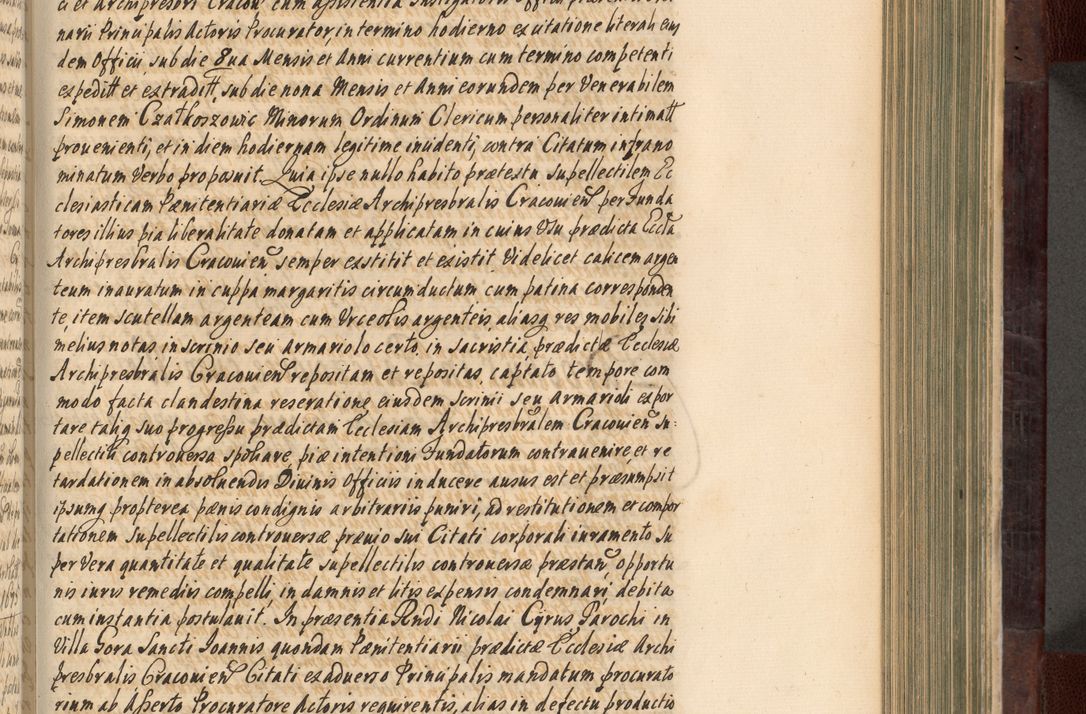 ci et Archipresbri Cracou cum assistentia Instigatoris Officii
narii Principalis Actoris Procurator, in termino hodierno ex citatione literali eius
dem Officii, sub die 8ua Mensis et Anni currentium cum termino competenti
expeditt et extraditt, sub die nona Mensis et Anni eorundem per Venerabilem
Simonem Czałkoszowic Minorum Ordinum Clericum personaliter intimatt
prouenienti, et in diem hodiernam legitime incidenti, contra Citatum infrano
minatum Verbo proposuit. Quia ipse nullo habito prætextu supellectilem Ec
clesiasticam Pænitentiariæ Ecclesiæ Archipresbralis Cracouien per Funda
tores illius pia liberalitate donatam et applicatam in cuius Vsu prædicta Eccła
Archipresbralis Cracouien semper exstitit et existit Videlicet calicem argen
teum inauratum in cuppa margaritis circumductum cum patina corresponden
te, item scutellam argenteam cum Vrceolis argenteis, aliasq res mobiles sibi
melius notas in scrinio seu armariolo certo, in sacristia prædictæ Ecclesiæ
Archipresbralis Cracouien repositam et repositas, captato tempore com
modo facta clandestina reseratione eiusdem scrinii seu armarioli expor
tare taliq suo progressu prædictam Ecclesiam Archipresbralem Cracouien su:
pellectili controuersa spoliare, piæ intentioni Fundatorum contrauenire, et re
tardationem in absoluendis Diuinis Officiis inducere ausus est et præsumpsit
ipsumq propterea pænis condignis arbitrariis puniri, ad restitutionem et compor
tationem supellectilis controuersæ præuio sui Citati corporali iuramento su
per Vera quantitate et qualitate supellectilis controuersæ præstan, opportu
nis iuris remediis compelli, in damnis et litis expensis condemnari, debita
cum instantia postulauit. In præsentia Rndi Nicolai Cyrus Parochi in
Villa Gora Sancti Ioannis quondam Pænitentiarii prædictæ Ecclesiæ Archi
presbralis Cracouien Citati ex aduerso Principalis mandatum procurato
rium ab Asserto Procuratore Actoris requirentis, alias in defectu productio